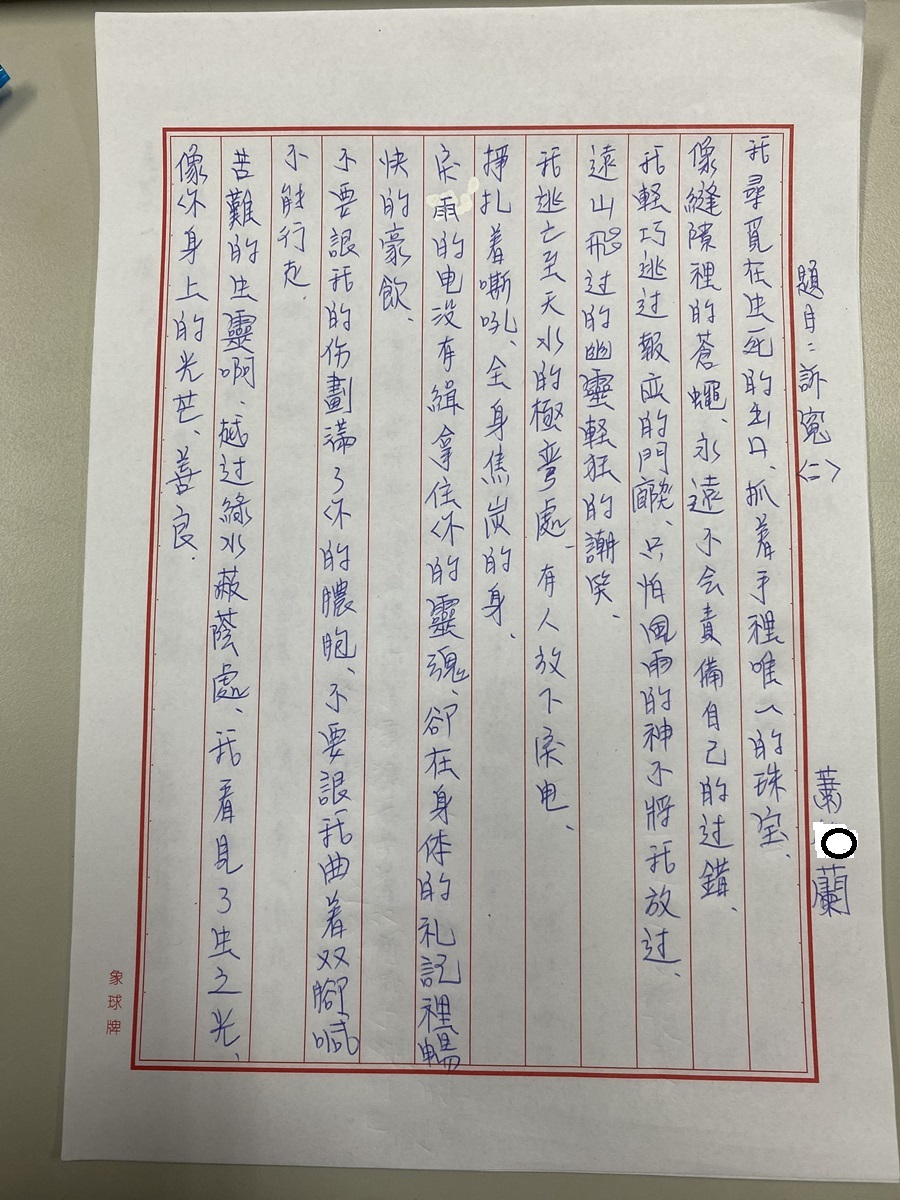 題目：訴冤〈二〉
蕭 蘭
我尋覓在生死的出口、抓着手裡唯一的珠宝、
像縫隙裡的蒼蠅、永遠不会責備自己的过錯、
我軽巧逃过報应的門、只怕風雨的神不將我放过、
遠山飛过的幽靈軽狂的謿笑、
我逃亡至天水的極弯處、有人放下闪电、
掙扎着嘶吼、全身焦炭的身、
雨的电没有緝拿住你的靈魂、卻在身体的礼記裡暢
快的豪飲、
不要誏我的伤劃滿了你的膿胞、不要誏我曲着双腳喊
不能行走、
苦難的生靈啊、越过綠水蔽蔭處、我看見了生之光、
像你身上的光芒、善良、
象球牌